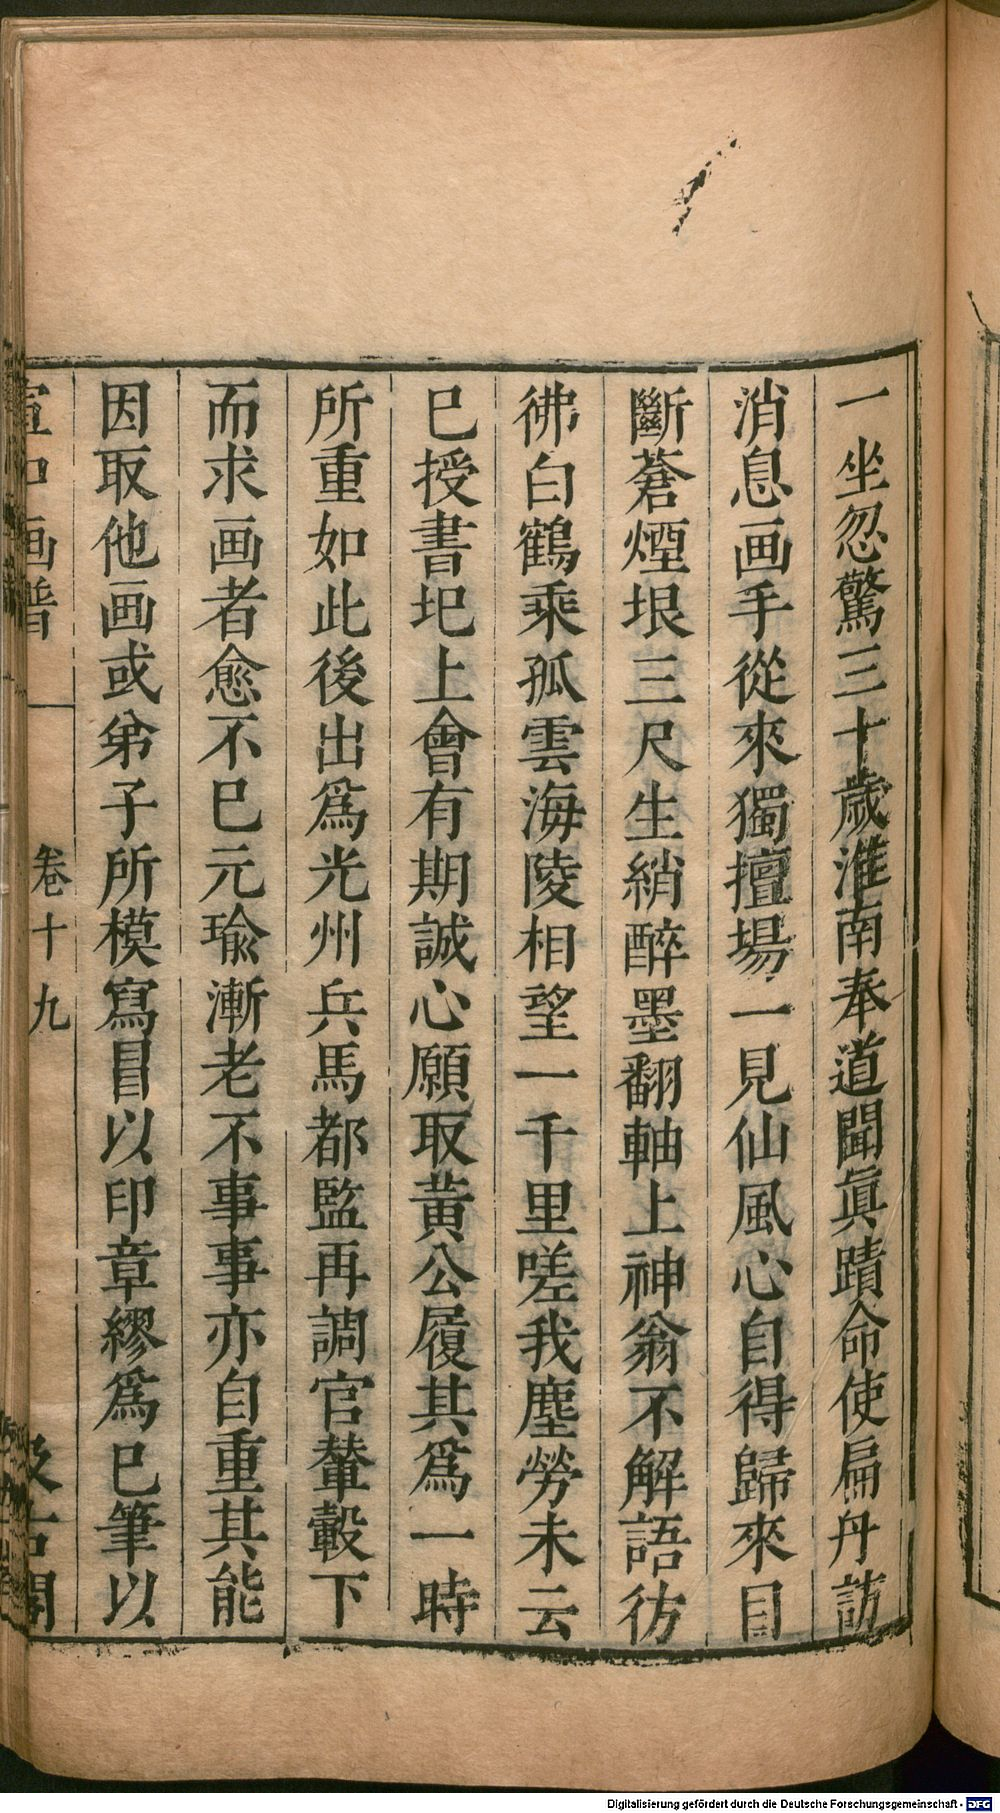 一坐忽驚三十歲淮南奉道聞眞蹟命使扁舟訪
消息画手從來獨擅場一見仙風心自得歸來目
斷蒼煙垠三尺生綃醉墨翻軸上神翁不解語彷
彿白鶴乘孤雲海陵相望一千里嗟我塵勞未云
已授書圯上會有期誠心願取黄公履其爲一時
所重如此後出爲光州兵馬都監再調官輦轂下
而求画者愈不已元瑜漸老不事事亦自重其能
因取他画或弟子所模寫冒以印章繆爲已筆以
宣和画譜
卷十九
汲古閣
Digitalisierung gefördert durch die Deutsche Forschungsgemeinschaft - DFG